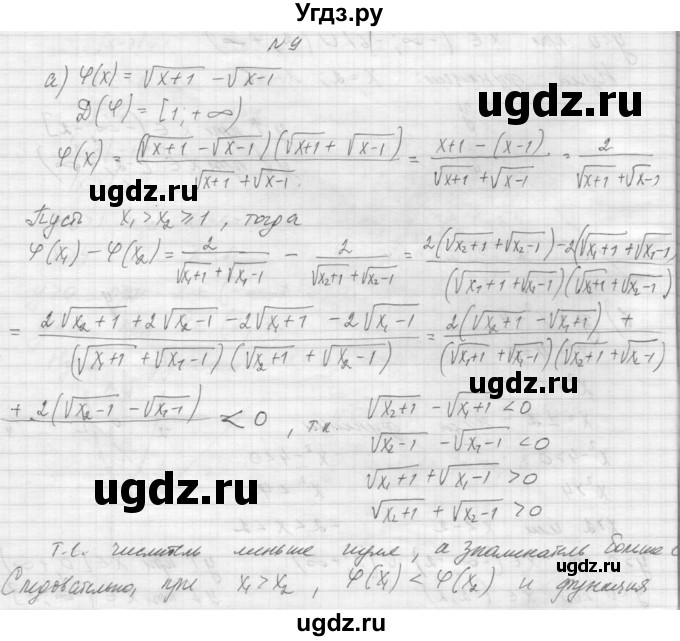 Угдз.ру
№9
а) φ(x) = √x+1 − √x−1
D(φ) = [1, +∞)
φ(x) = (√x+1 − √x−1)(√x+1 + √x−1) / √x+1 + √x−1 = x+1 − (x−1) / √x+1 + √x−1 = 2 / √x+1 + √x−1
Пусть x₁ > x₂ ⩾ 1, тогда
φ(x₁) − φ(x₂) = 2 / √x₁+1 + √x₁−1 − 2 / √x₂+1 + √x₂−1 = 2(√x₂+1 + √x₂−1) − 2(√x₁+1 + √x₁−1) / (√x₁+1 + √x₁−1)(√x₂+1 + √x₂−1)
= 2√x₂+1 + 2√x₂−1 − 2√x₁+1 − 2√x₁−1 / (√x₁+1 + √x₁−1)(√x₂+1 + √x₂−1) = 2(√x₂+1 − √x₁+1) + / (√x₁+1 + √x₁−1)(√x₂+1 + √x₂−1)
+ 2(√x₂−1 − √x₁−1) < 0, т.к. √x₂+1 − √x₁+1 < 0
√x₂−1 − √x₁−1 < 0
√x₁+1 + √x₁−1 > 0
√x₂+1 + √x₂−1 > 0
т.е. числитель меньше нуля, а знаменатель больше
Следовательно, при x₁ > x₂, φ(x₁) < φ(x₂) и функция
ugdz.ru
ugdz.ru
ugdz.ru
ugdz.ru
ugdz.ru
ugdz.ru